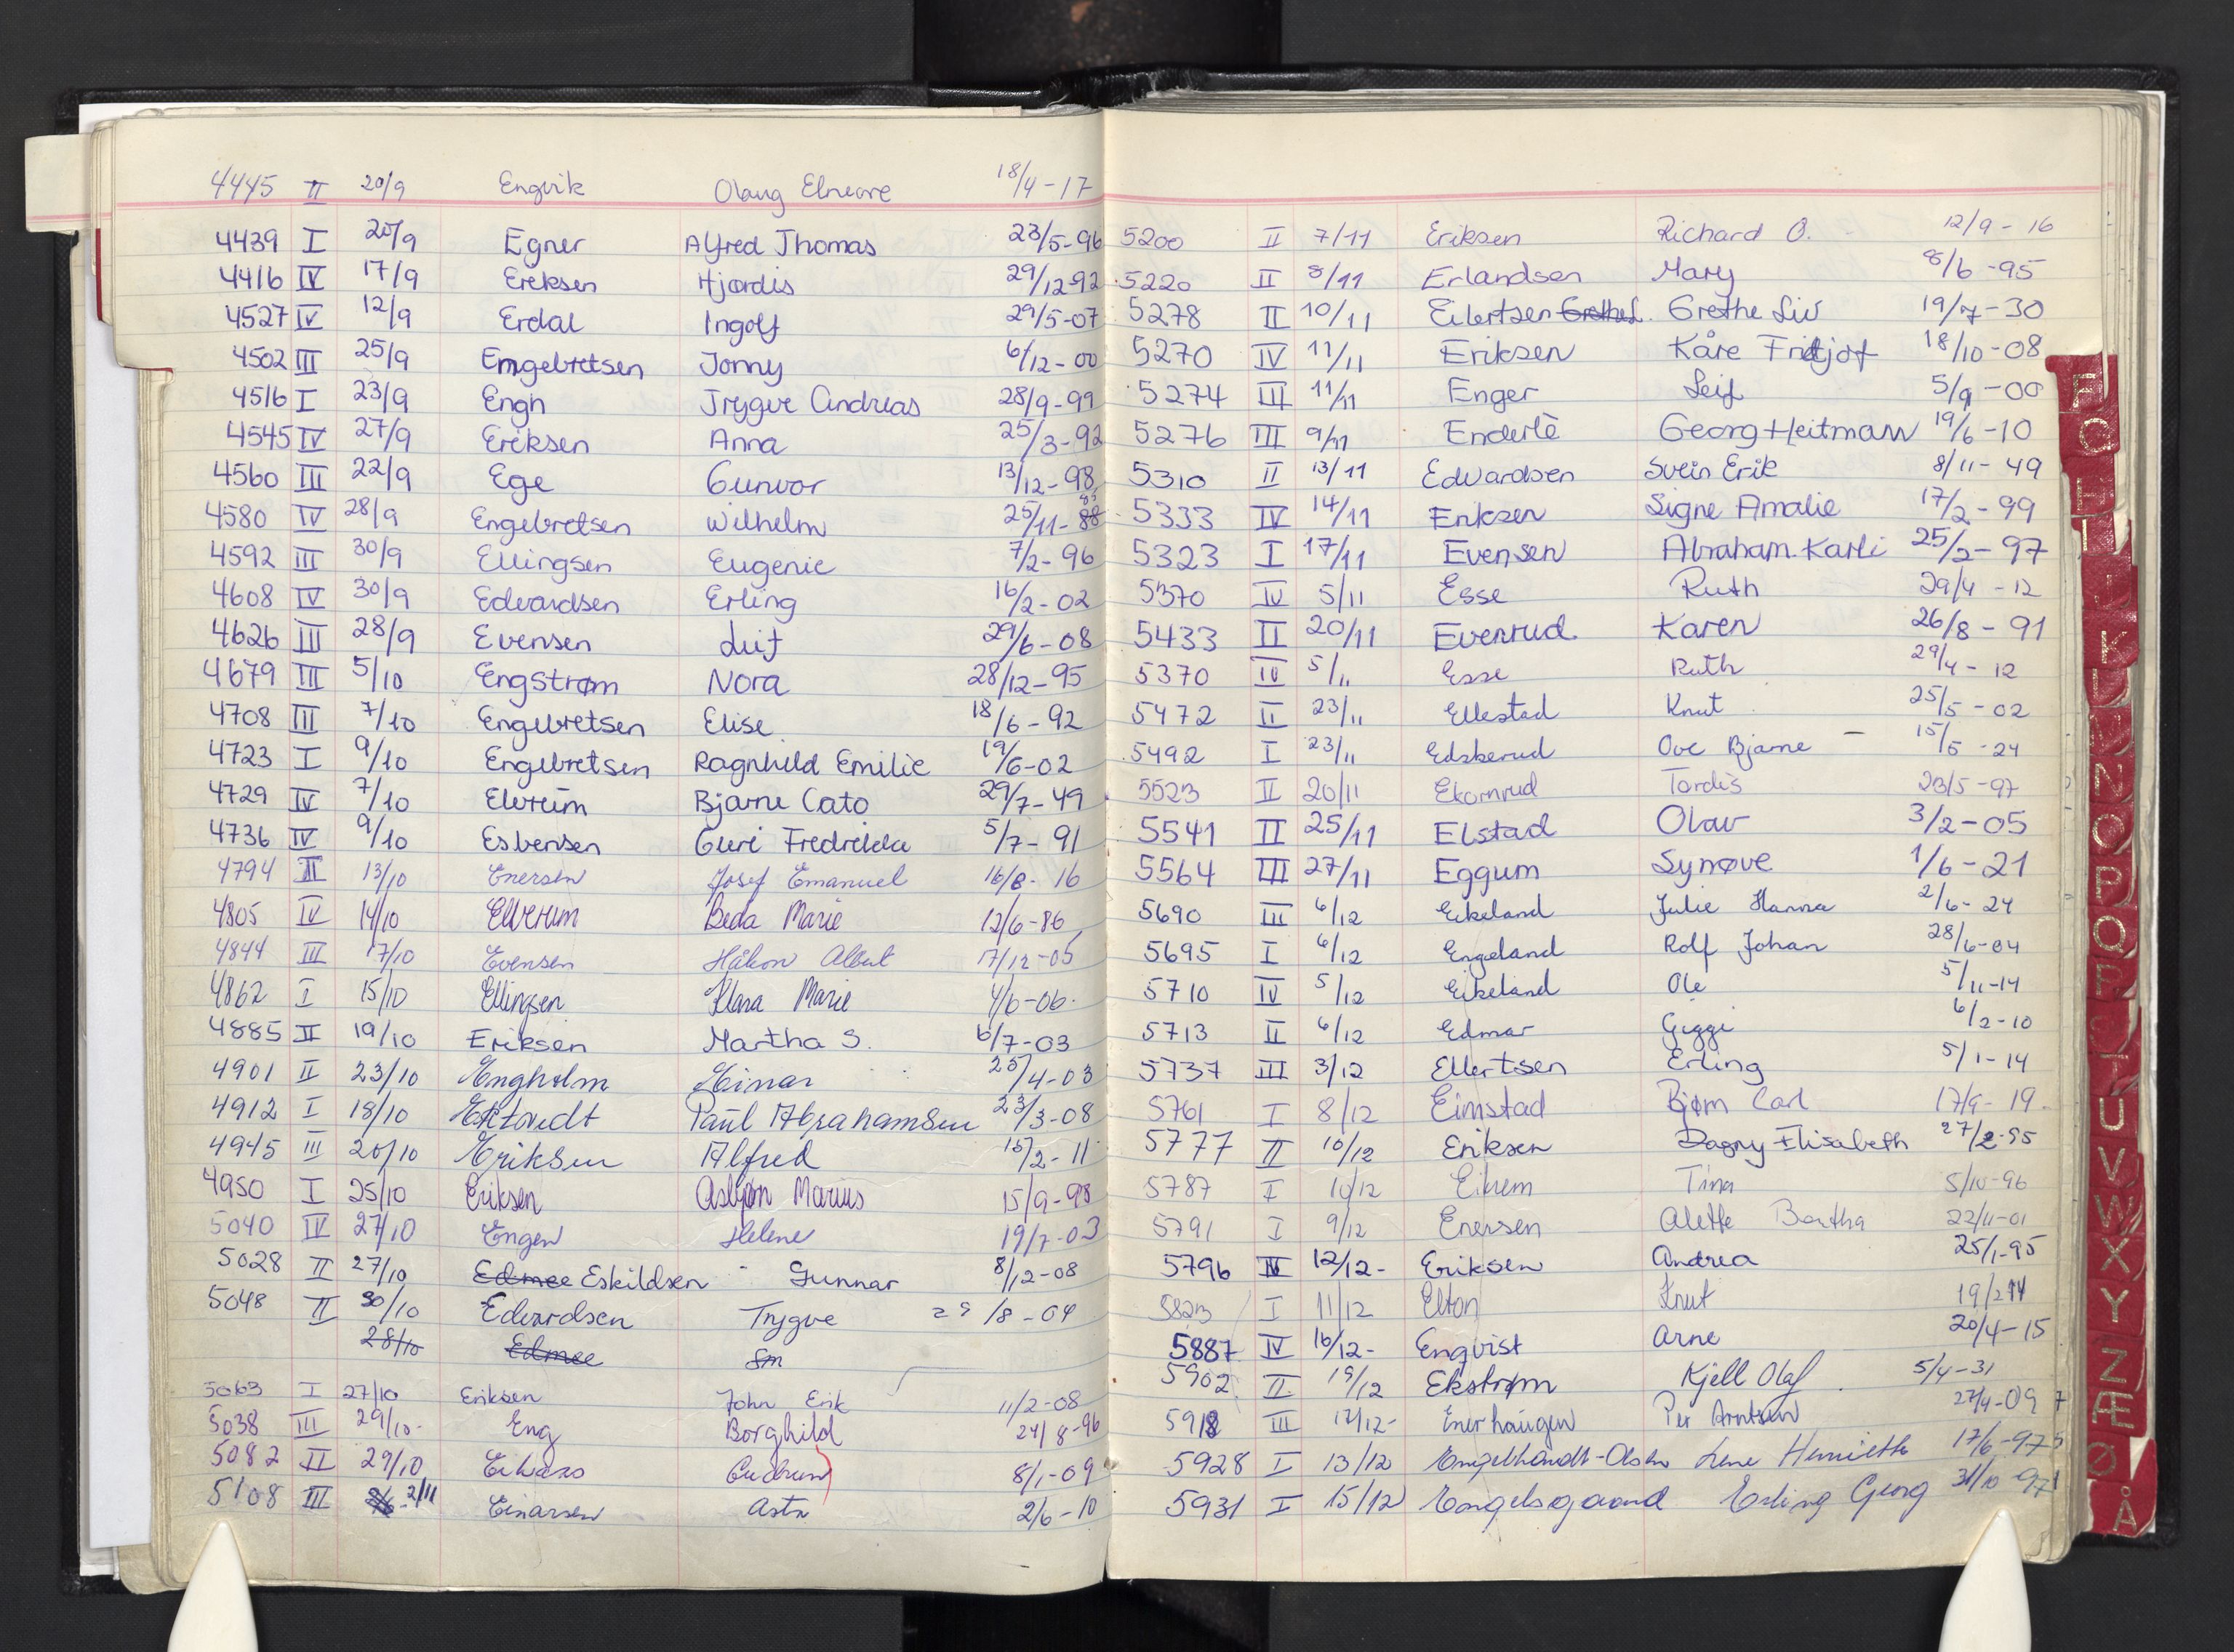 4445 II 20/9 Engvik Olaug 18/4-17
4439 I 20/9 Egner Alfred Thomas 23/5-96
4416 IV 17/9 Ereksen Hjørdis 29/12-92
4527 IV 12/9 Erdal Ingolf 29/5-07
4502 III 25/9 Engebretsen Jonny 6/12-00
4516 I 23/9 Engh Trygve Andreas 28/9-99
4545 IV 27/9 Eriksen Anna 25/3-92
4560 III 22/9 Ege Gunvor 13/12-98
4580 IV 28/9 Engebretsen Wilhelm 25/11-88
4592 III 30/9 Ellingsen Eugenie 7/2-96
4608 IV 30/9 Edvardsen Erling 16/2-02
4626 III 28/9 Evensen Leif 29/6-08
4679 III 5/10 Engstrøm Nora 28/12-95
4708 III 7/10 Engebretsen Elise 18/6-92
4723 I 9/10 Engebretsen Ragnhild Emilie 19/6-02
4729 IV 7/10 Elvrum Bjarne Cato 29/7-49
4736 IV 9/10 Esbensen Guri Fredrikke 5/7-91
4794 II 13/10 Enersen Josef Emanuel 16/8-16
4805 IV 14/10 Elverum Beda Marie 12/6-86
4844 III 17/10 Evensen Håkon Albert 17/12-05
4862 I 15/10 Ellingsen Klara Marie 4/6-06
4885 II 19/10 Eriksen Martha S. 6/7-03
4901 II 23/10 Engholm Einar 25/4-03
4912 I 18/10 Paul Abrahamsen 23/3-08
4945 III 20/10 Eriksen Alfred 15/2-11
4950 I 25/10 Eriksen Asbjørn Marius 15/9-98
5040 IV 27/10 Engen Helene 19/7-03
5028 II 27/10 Edmee Eskildsen Gunnar 8/12-08
5048 II 30/10 Edvardsen Trygve 29/8-04
28/10 Edmee Sm
5063 I 27/10 Eriksen John Erik 11/2-08
5038 III 29/10- Eng Borghild 24/8-96
5082 II 29/10 Gudrun 8/1-09
5108 III 2/11 Einarsen Asta 2/6-10
5200 II 7/11 Eriksen Richard O. 12/9-16
5220 II 8/11 Erlandsen Mary 8/6-95
5278 II 10/11 Eilertsen Grethe L. Grethe Liv 19/7-30
5270 IV 11/11 Eriksen Kåre Fridtjof 18/10-08
5274 III 11/11 Enger Leif 5/9-00
5276 III 9/11 Enderlè Georg Heitmann 19/6-10
5310 II 13/11 Edvardsen Svein Erik 8/11-49
5333 IV 14/11 Eriksen Signe Amalie 17/2-99
5323 I 17/11 Evensen Abraham Karli 25/2-97
5370 IV 5/11 Esse Ruth 29/4-12
5433 II 20/11 Evenrud Karen 26/8-91
5370 IV 5/11 Esse Ruth 29/4-12
5472 II 23/11 Ellestad Knut 25/5-02
5492 I 23/11 Edsberud Ove Bjarne 15/5-24
5523 II 20/11 Ekornrud Tordis 23/5-97
5541 II 25/11 Elstad Olav 3/2-05
5564 III 27/11 Eggum Synøve 1/6-21
5690 III 6/12 Eikeland Julie Hanna 2/6-24
5695 I 6/12 Engeland Rolf Johan 28/6-04
5710 IV 5/12 Eikeland Ole 5/11-14
5713 II 6/12 Edmar Giggi 6/2-10
5737 III 3/12 Ellertsen Erling 5/1-14
5761 I 8/12 Eimstad Bjørn Carl 17/9-19
5777 II 10/12 Eriksen Dagny Elisabeth 27/2-95
5787 I 10/12 Eikrem Tina 5/10-96
5791 I 9/12 Enersen Alette Bertha 22/11-01
5796 IV 12/12- Eriksen Andrea 25/1-95
5823 I 11/12 Elton Knut 19/2
5887 IV 16/12- Enqvist Arne 20/4-15
5902 II 19/12 Ekstrøm Kjell Olaf 5/4-31
5918 III 17/12- Enerhaugen Per Arntsen 27/4-09
5928 I 13/12 Engelhardt-Olsen Lene Henriette 17/6-97
5931 I 15/12 Engelsgaard Erling Georg 31/10-97
F
G
H
I
J
K
L
M
N
O
P
Q
R
S
T
U
V
W
X
Y
Z
Æ
Ø
Å